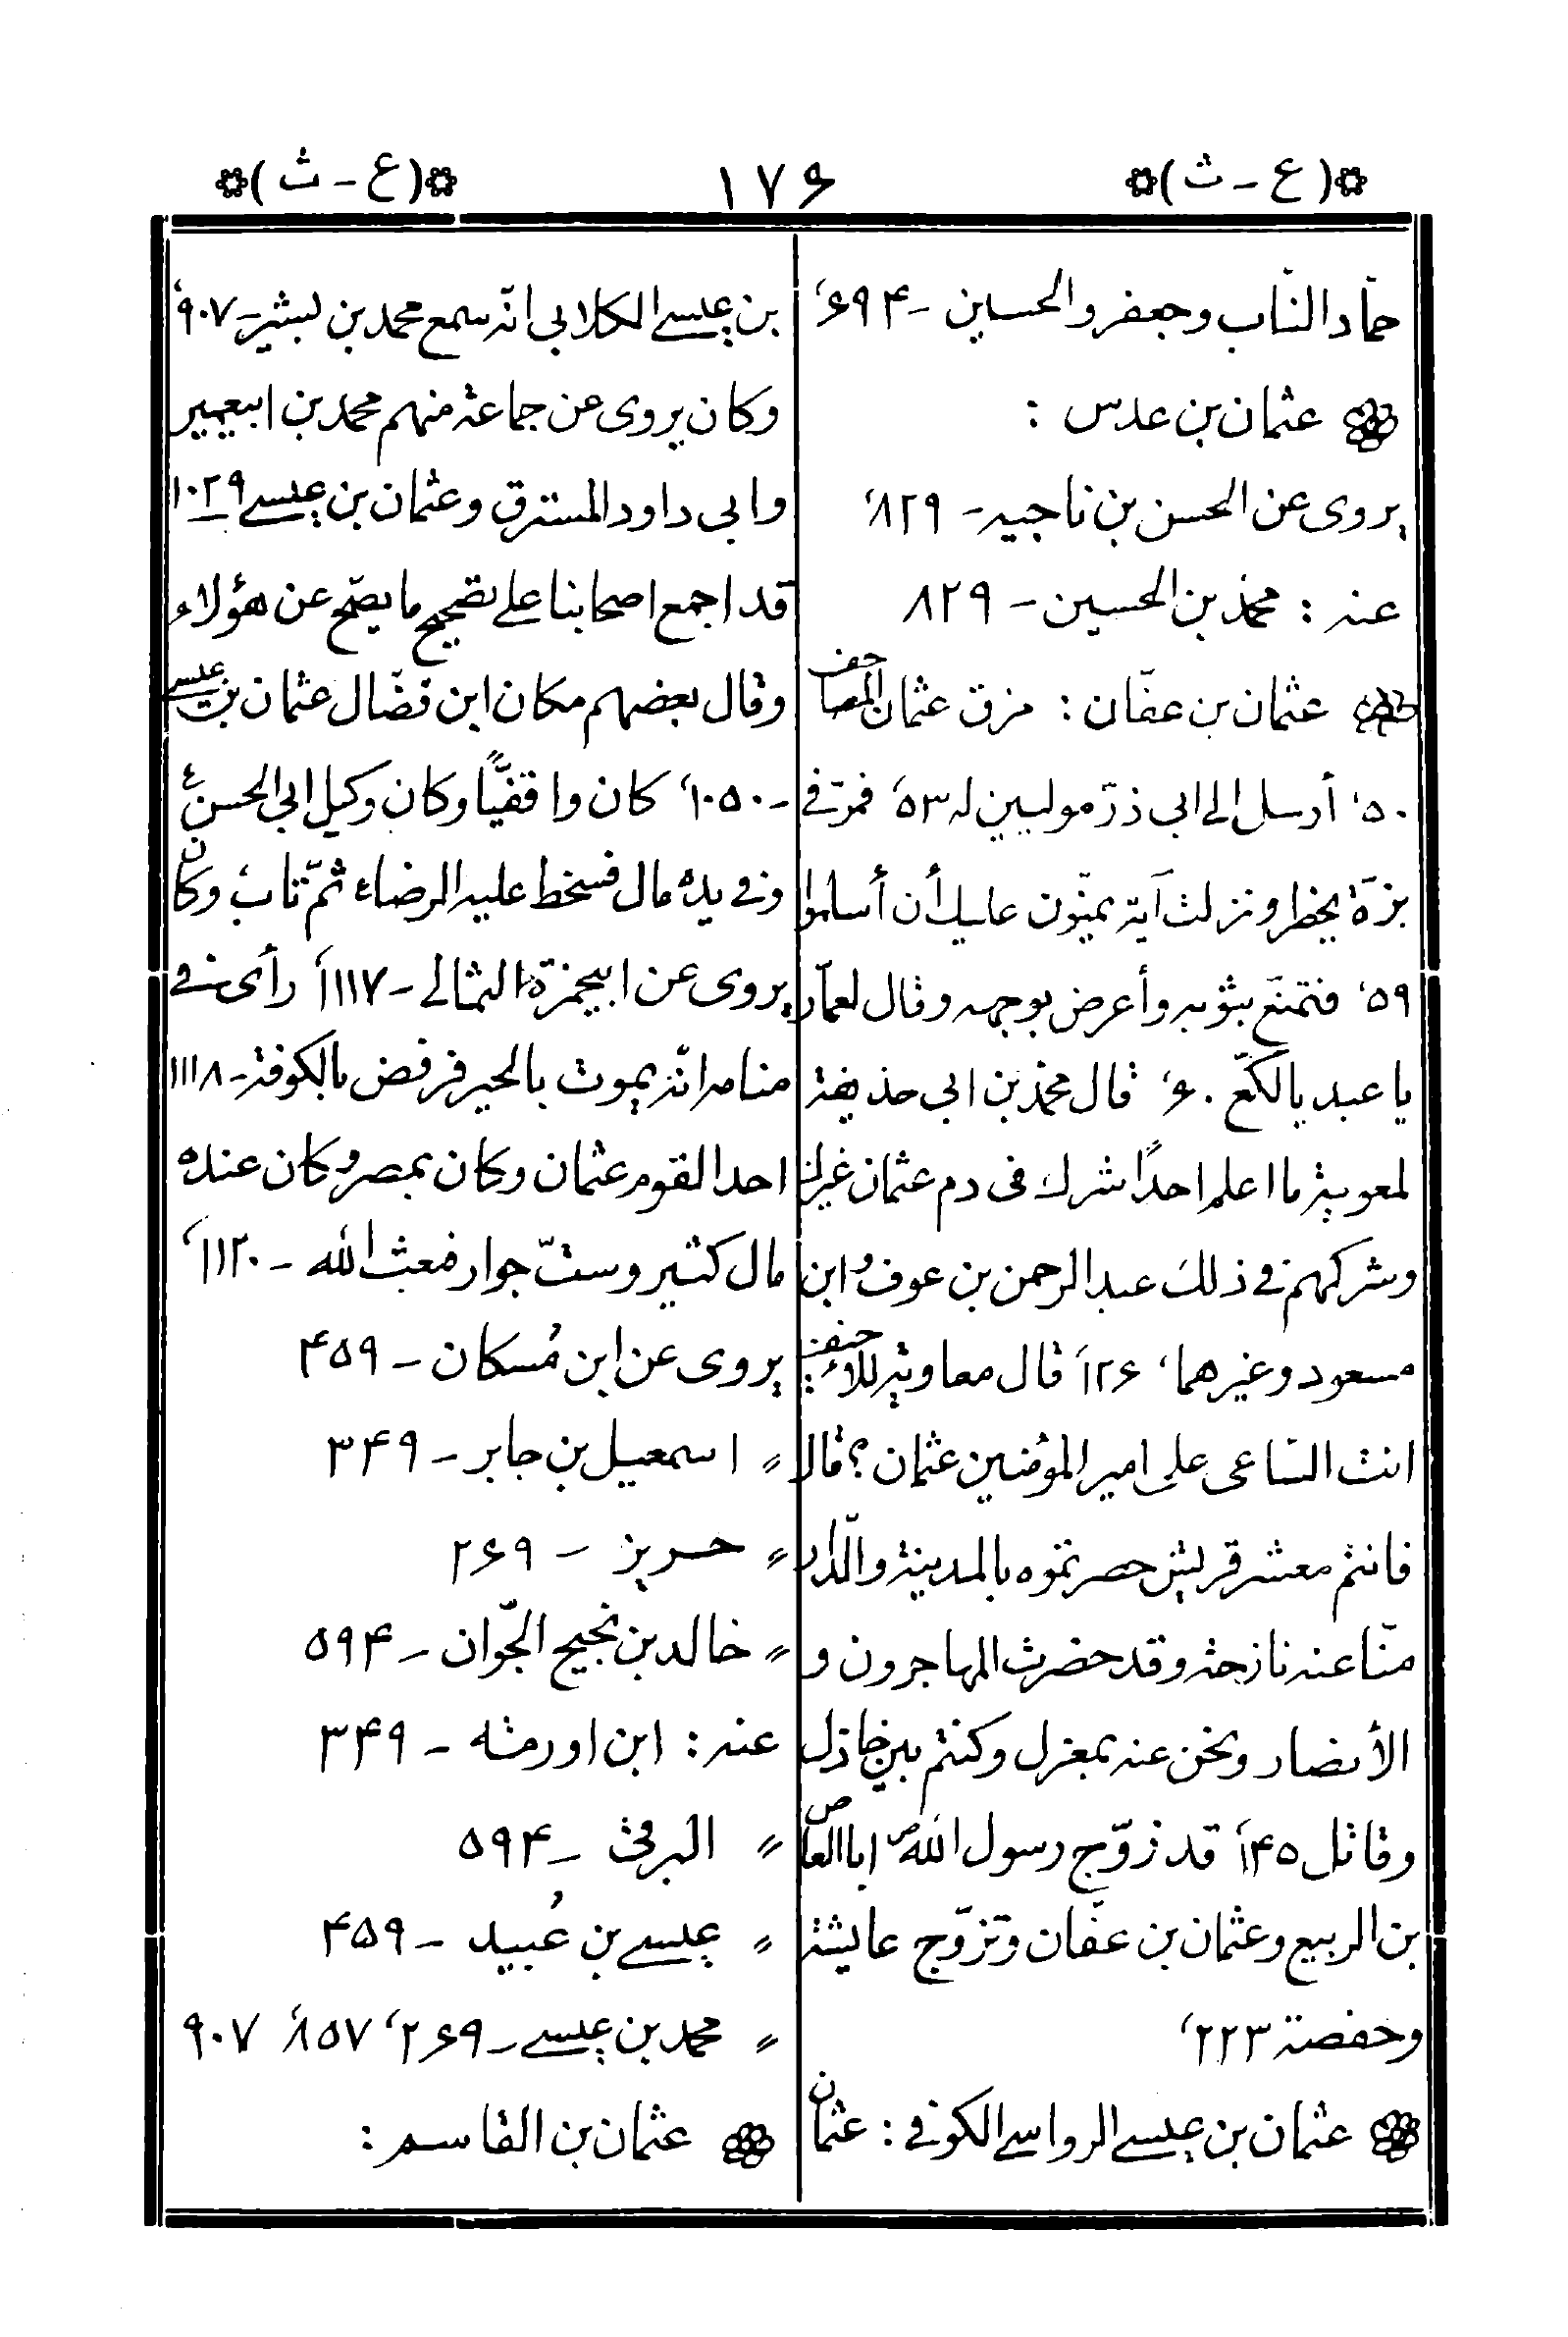 (ع - ث)
١٧۶
(ع - ث)
حمّاد النّاب وجعفر والحسين - ۶٩۴،
عثمان بن عدس :
يروى عن الحسن بن ناجيه - ٨٢٩،
عنه : محمّد بن الحسين - ٨٢٩
عثمان بن عفّان : مزق عثمان المصاحف
٥٠، أرسل الى ابى ذرّ موليين له ٥٣، فمرّ فى
بزة يخطر ونزلت آية يمنّون عليك أن أسلموا
٥٩، فتمنّع بثوبه وأعرض بوجهه وقال لعمّار
يا عبد يا لكّع ۶٠، قال محمّد بن ابى حذيفة
لمعوية ما اعلم احدًا شرك فى دم عثمان غيرك
وشركهم فى ذلك عبد الرحمن بن عوف وابن
مسعود وغيرهما، ١٢۶أ قال معاوية للاحنف:
انت السّاعى على امير المؤمنين عثمان؟ قال
فانتم معشر قريش حصرتموه بالمدينة والدّار
منّا عنه نازحة وقد حضرت المهاجرون و
الأنصار ونحن عنه بمعزل وكنتم بين خاذل
وقاتل ١۴٥أ قد زوّج رسول اللهص ابا العاص
بن الربيع وعثمان بن عفّان وتزوّج عايشة
وحفصة ٢٢٣،
عثمان بن عيسى الرواسى الكوفى : عثمان
بن عيسى الكلابى انّه سمع محمد بن بشير - ٩٠٧،
وكان يروى عن جماعة منهم محمد بن ابيعمير
وابى داود المسترق وعثمان بن عيسى ١٠٢٩
قد اجمع اصحابنا على تصحيح ما يصّح عن هؤلاء
وقال بعضهم مكان ابن فضّال عثمان بن عيسى
- ١٠٥٠، كان واقفيًّا وكان وكيل ابى الحسنع
وفى يده مال فسخط عليه الرضاع ثمّ تاب وكان
يروى عن ابيحمزة الثمالى - ١١١٧أ رأى فى
منامه انّه يموت بالحير فرفض بالكوفة - ١١١٨
احد القوم عثمان وكان بمصر وكان عنده
مال كثير وستّ جوار فبعث الله - ١١٢٠،
يروى عن ابن مُسكان - ۴٥٩
〃 اسمعيل بن جابر - ٣۴٩
〃 حريز - ٢۶٩
〃 خالد بن نجيح الجّوان - ٥٩۴
عنه : ابن اورمة - ٣۴٩
〃 البرقى - ٥٩۴
〃 عيسى بن عُبيد - ۴٥٩
〃 محمد بن عيسى - ٢۶٩، ٨٥٧، ٩٠٧
عثمان بن القاسم :